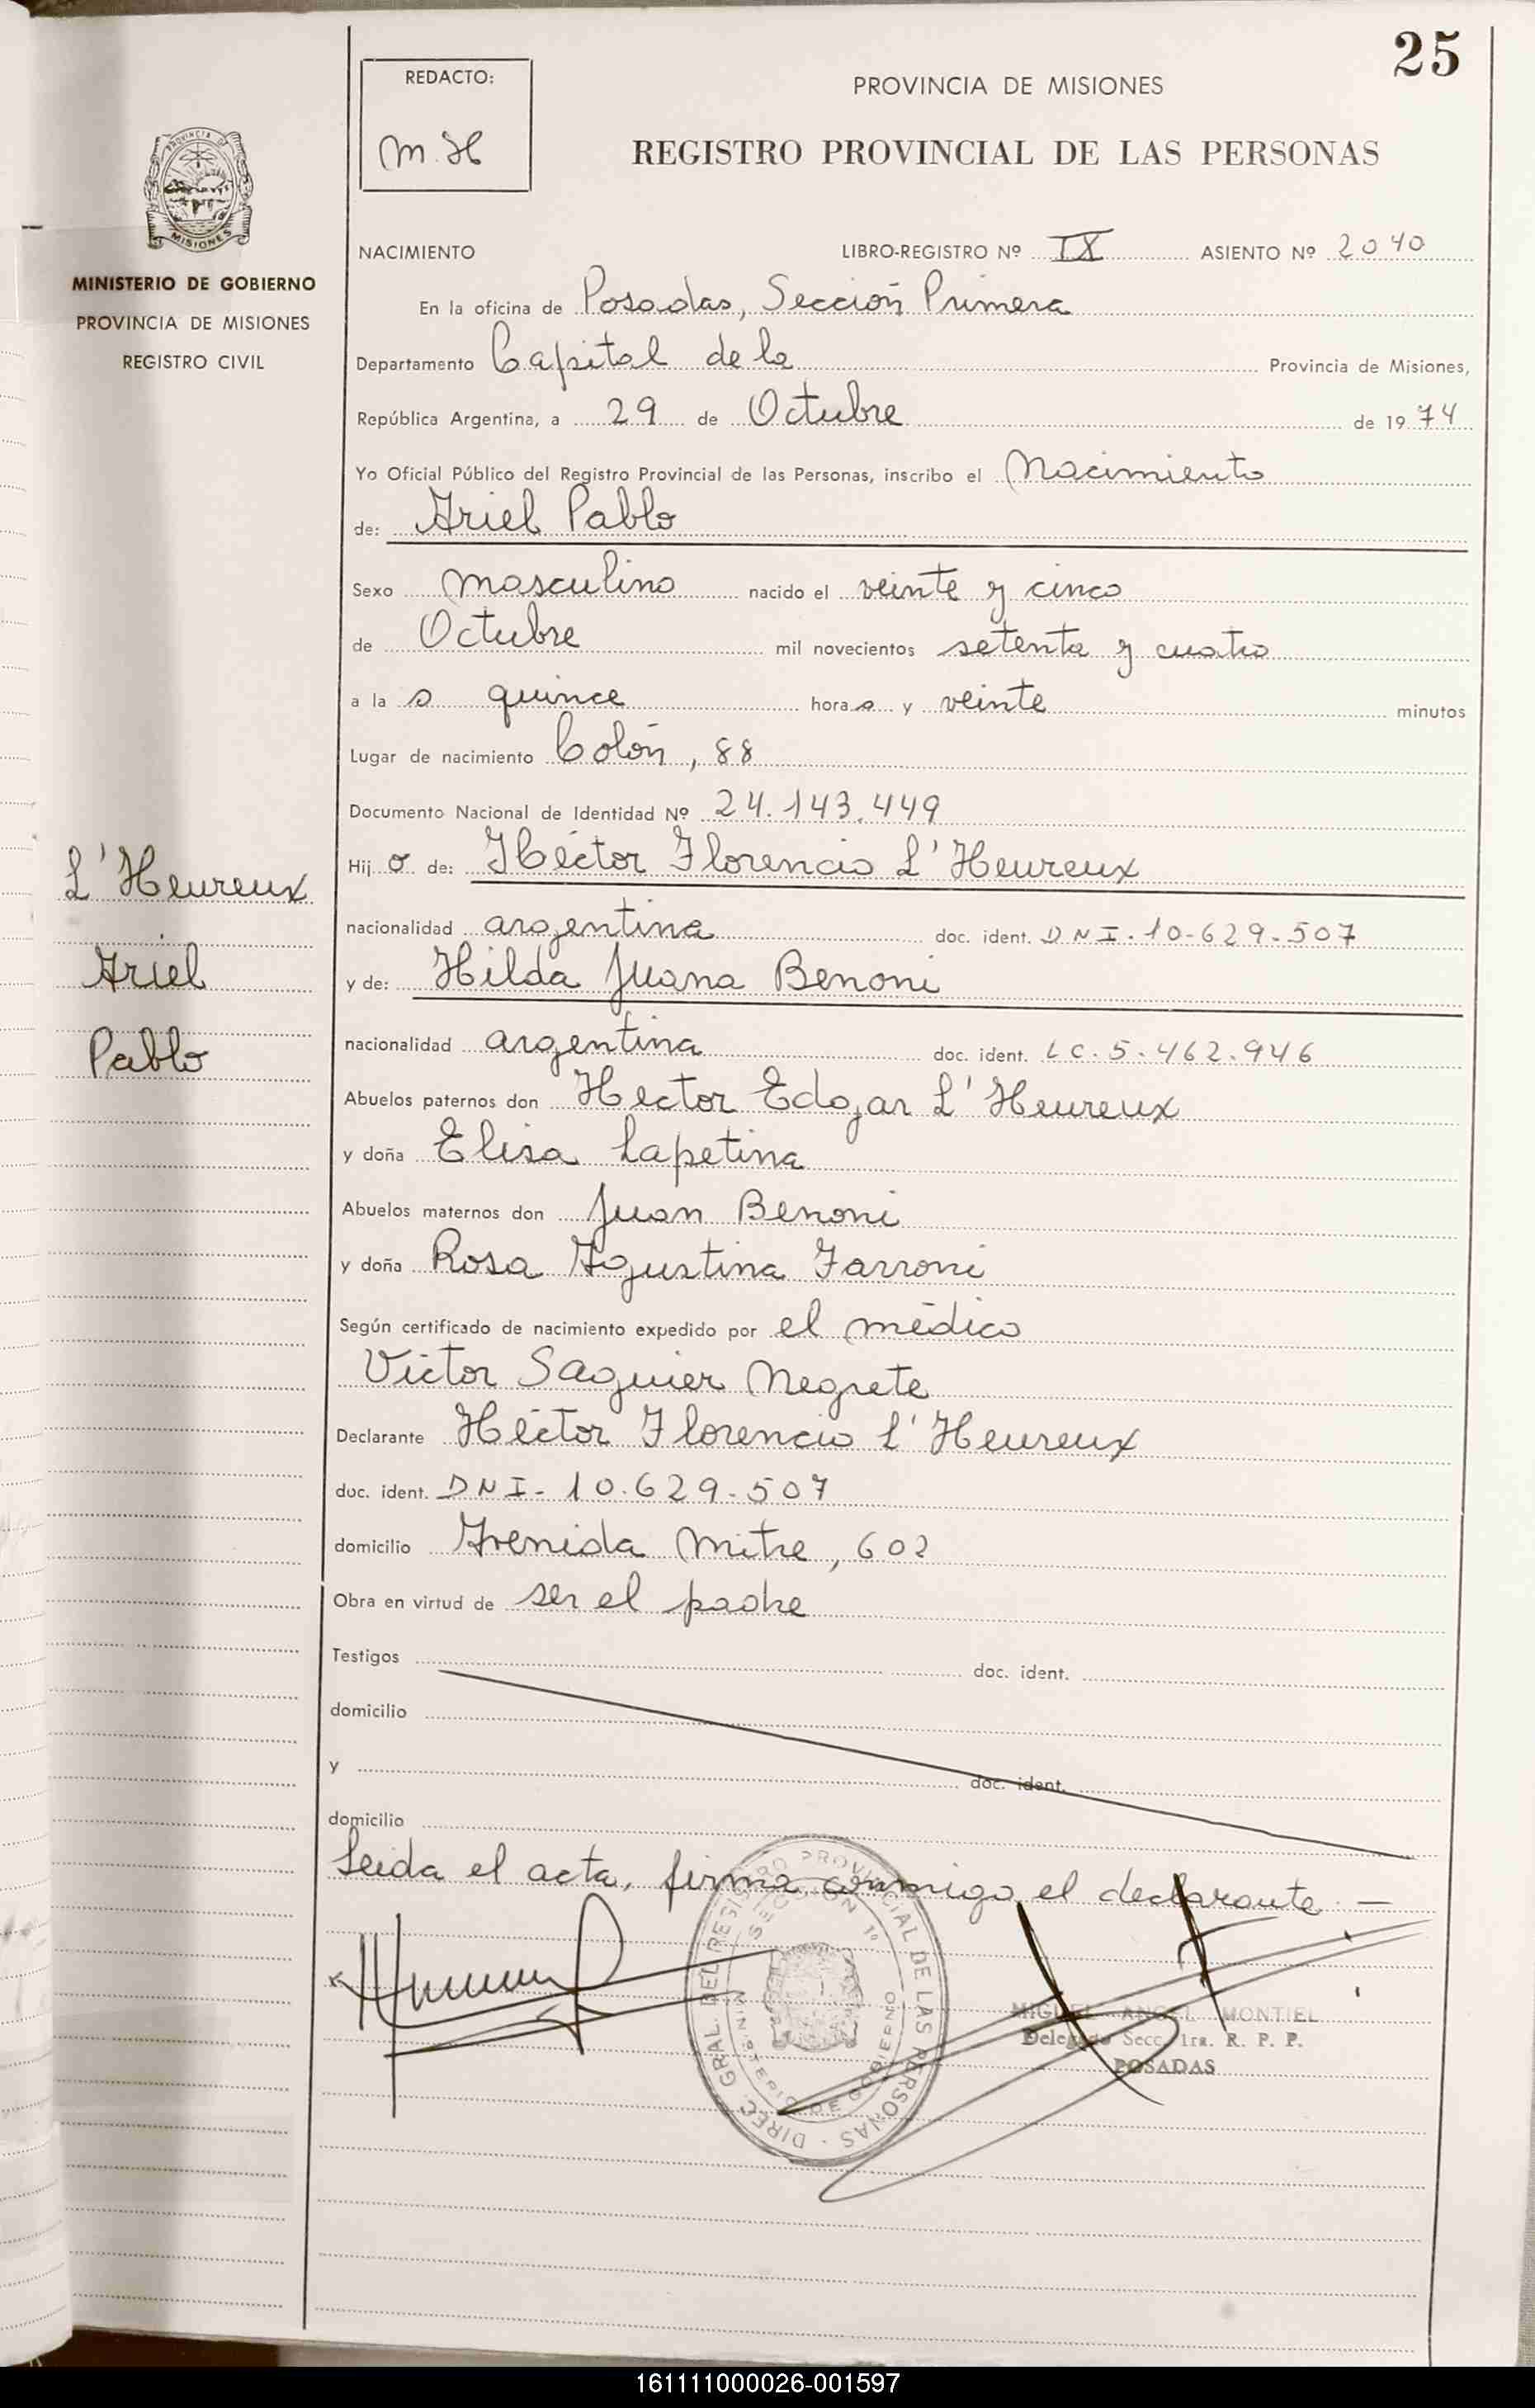 25
REDACTO:
M.H
PROVINCIA DE MISIONES
REGISTRO PROVINCIAL DE LAS PERSONAS
PROVINCIA DE
MISIONES
MINISTERIO DE GOBIERNO
PROVINCIA DE MISIONES
REGISTRO CIVIL
NACIMIENTO LIBRO-REGISTRO Nº IX ASIENTO Nº 2040
En la oficina de Posadas, Sección Primera
Departamento Capital de la Provincia de Misiones,
República Argentina, a 29 de Octubre de 1974
Yo Oficial Público del Registro Provincial de las Personas, inscribo el Nacimiento
de: Ariel Pablo
Sexo masculino nacido el veinte y cinco
de Octubre mil novecientos setenta y cuatro
a la s quince hora s y veinte minutos
Lugar de nacimiento Colón, 88
Documento Nacional de Identidad Nº 24.143.449
L'Heureux
Ariel
Pablo
Hij o de: Héctor Florencio L'Heureux
nacionalidad argentina doc. ident. DNI-10-629-507
y de: Hilda Juana Benoni
nacionalidad argentina doc. ident. LC.5.462.946
Abuelos paternos don Hector Edgar L'Heureux
y doña Elisa Lapetina
Abuelos maternos don Juan Benoni
y doña Rosa Agustina Farroni
Según certificado de nacimiento expedido por el médico
Victor Saguier Negrete
Declarante Héctor Florencio L'Heureux
doc. ident. DNI-10.629-507
domicilio Avenida Mitre, 602
Obra en virtud de ser el padre
Testigos doc. ident.
domicilio
y doc. ident.
domicilio
Leida el acta, firma conmigo el declarante.—
DIREC. GRAL. DEL REGISTRO PROVINCIAL DE LAS PERSONAS
SECCION 1º
MINISTERIO DE GOBIERNO
MIGUEL ANGEL MONTIEL
Delegado Secc. 1ra. R. P. P.
POSADAS
161111000026-001597